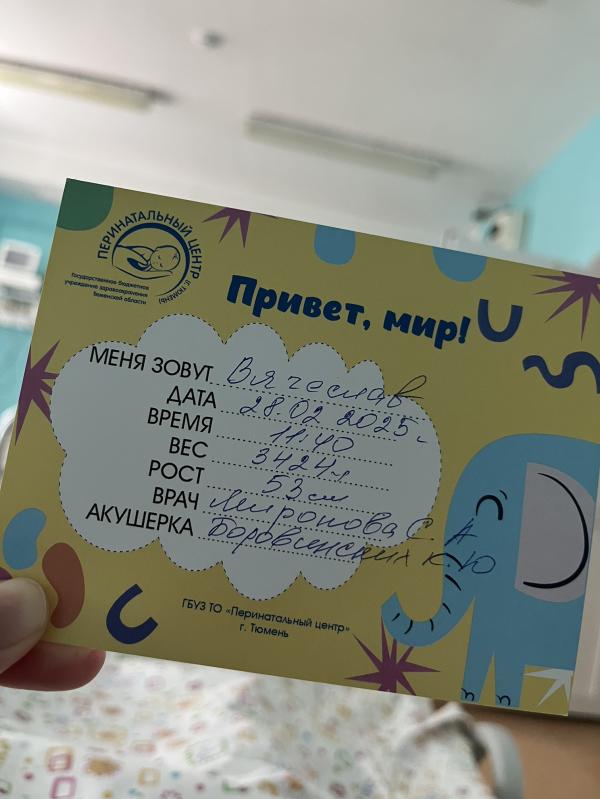 ПЕРИНАТАЛЬНЫЙ ЦЕНТР (г. ТЮМЕНЬ)
Государственное бюджетное
учреждение здравоохранения
Тюменской области
Привет, мир!
МЕНЯ ЗОВУТ Вячеслав
ДАТА 28.02 2025г
ВРЕМЯ 11:40
ВЕС 3424г
РОСТ 53см
ВРАЧ Миронова С А
АКУШЕРКА Боровинских К.Ю
ГБУЗ ТО «Перинатальный центр»
г. Тюмень